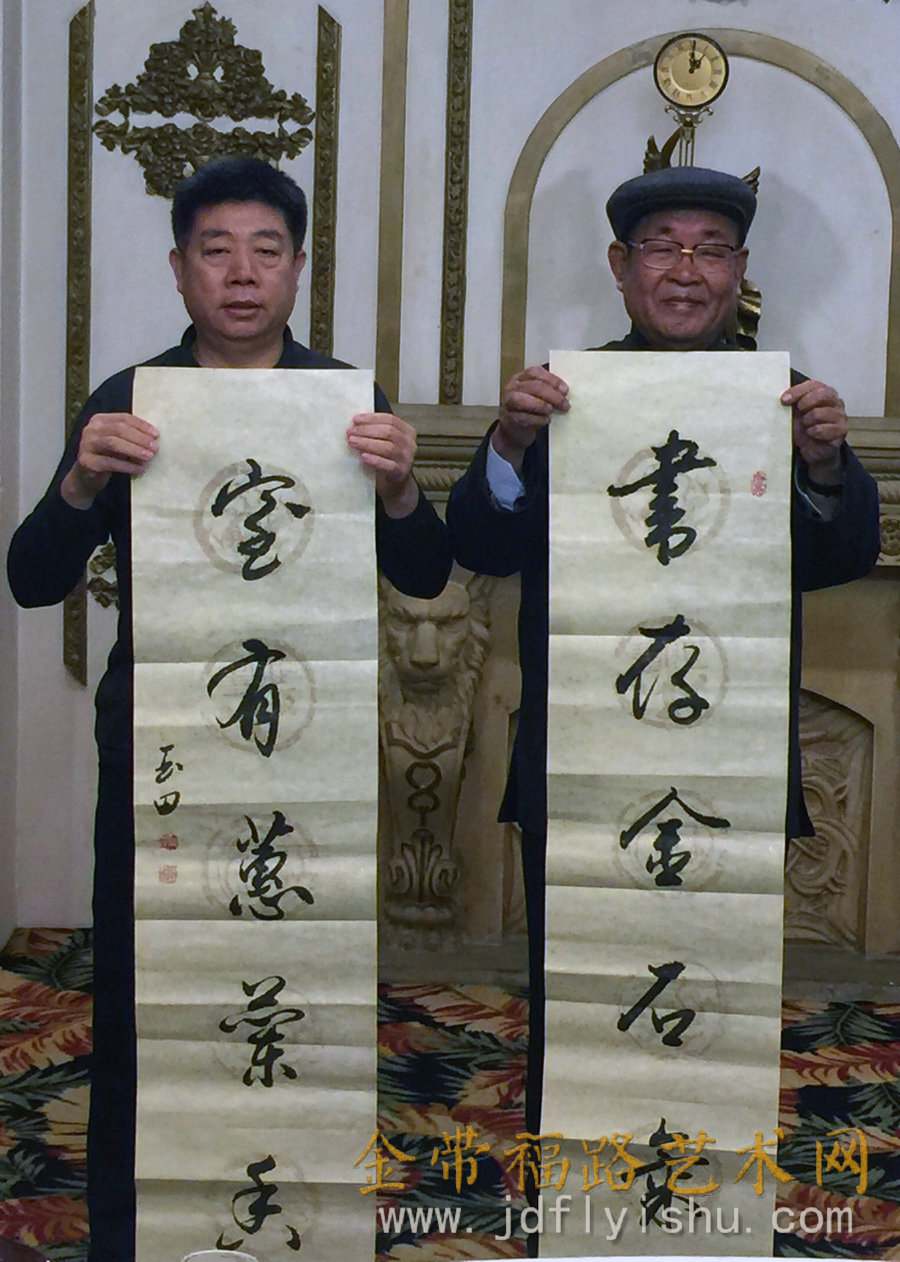 書存金石氣
室有蕙蘭香
玉田
金带福路艺术网
www.jdflyishu.com